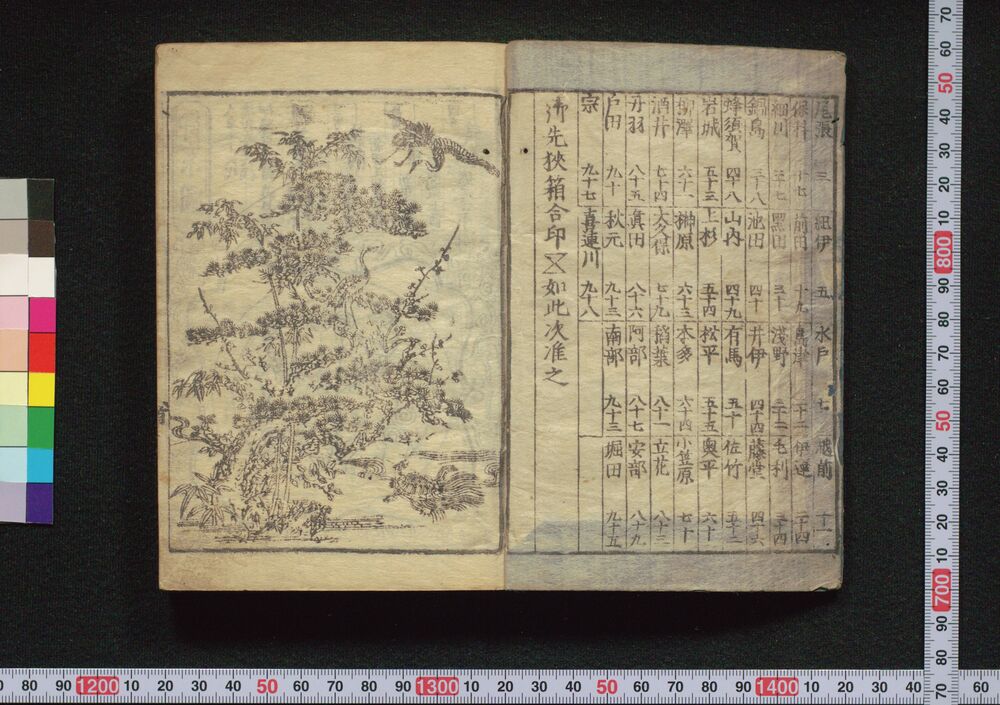 尾張 三 紀伊 五 水戸 七 越前 十一
保科 十七 前田 十九 島津 二十二 伊達 二十四
細川 三十七 黒田 三十 浅野 三十二 毛利 三十四
鍋島 三十八 池田 四十 井伊 四十四 藤堂 四十六
蜂須賀 四十八 山内 四十九 有馬 五十 佐竹 五十二
岩城 五十三 上杉 五十四 松平 五十五 奥平 六十
柳澤 六十一 榊原 六十三 本多 六十四 小笠原 七十
酒井 七十四 大久保 七十九 稲葉 八十一 立花 八十三
丹羽 八十五 眞田 八十六 阿部 八十七 安部 八十九
戸田 九十 秋元 九十二 南部 九十三 堀田 九十五
宗 九十七 喜連川 九十八
御先挟箱合印 如此次准之
70
60
50
40
30
20
10
800
90
80
70
60
50
40
30
20
10
700
90
80
70
80 90 1200 10 20 30 40 50 60 70 80 90 1300 10 20 30 40 50 60 70 80 90 1400 10 20 30 40 60